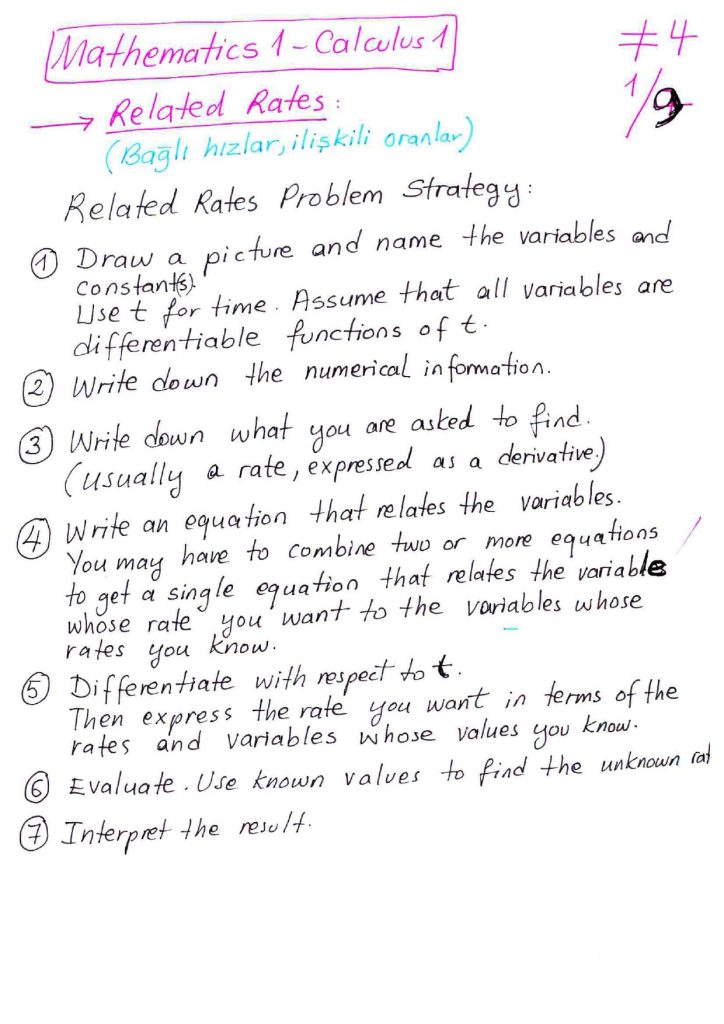 Mathematics 1 - Calculus 1
#4
1/9
→ Related Rates:
(Bağlı hızlar, ilişkili oranlar)
Related Rates Problem Strategy:
① Draw a picture and name the variables and
constant(s).
Use t for time. Assume that all variables are
differentiable functions of t.
② Write down the numerical information.
③ Write down what you are asked to find.
(usually a rate, expressed as a derivative.)
④ Write an equation that relates the variables.
You may have to combine two or more equations
to get a single equation that relates the variable
whose rate you want to the variables whose
rates you know.
⑤ Differentiate with respect to t.
Then express the rate you want in terms of the
rates and variables whose values you know.
⑥ Evaluate. Use known values to find the unknown rat
⑦ Interpret the result.